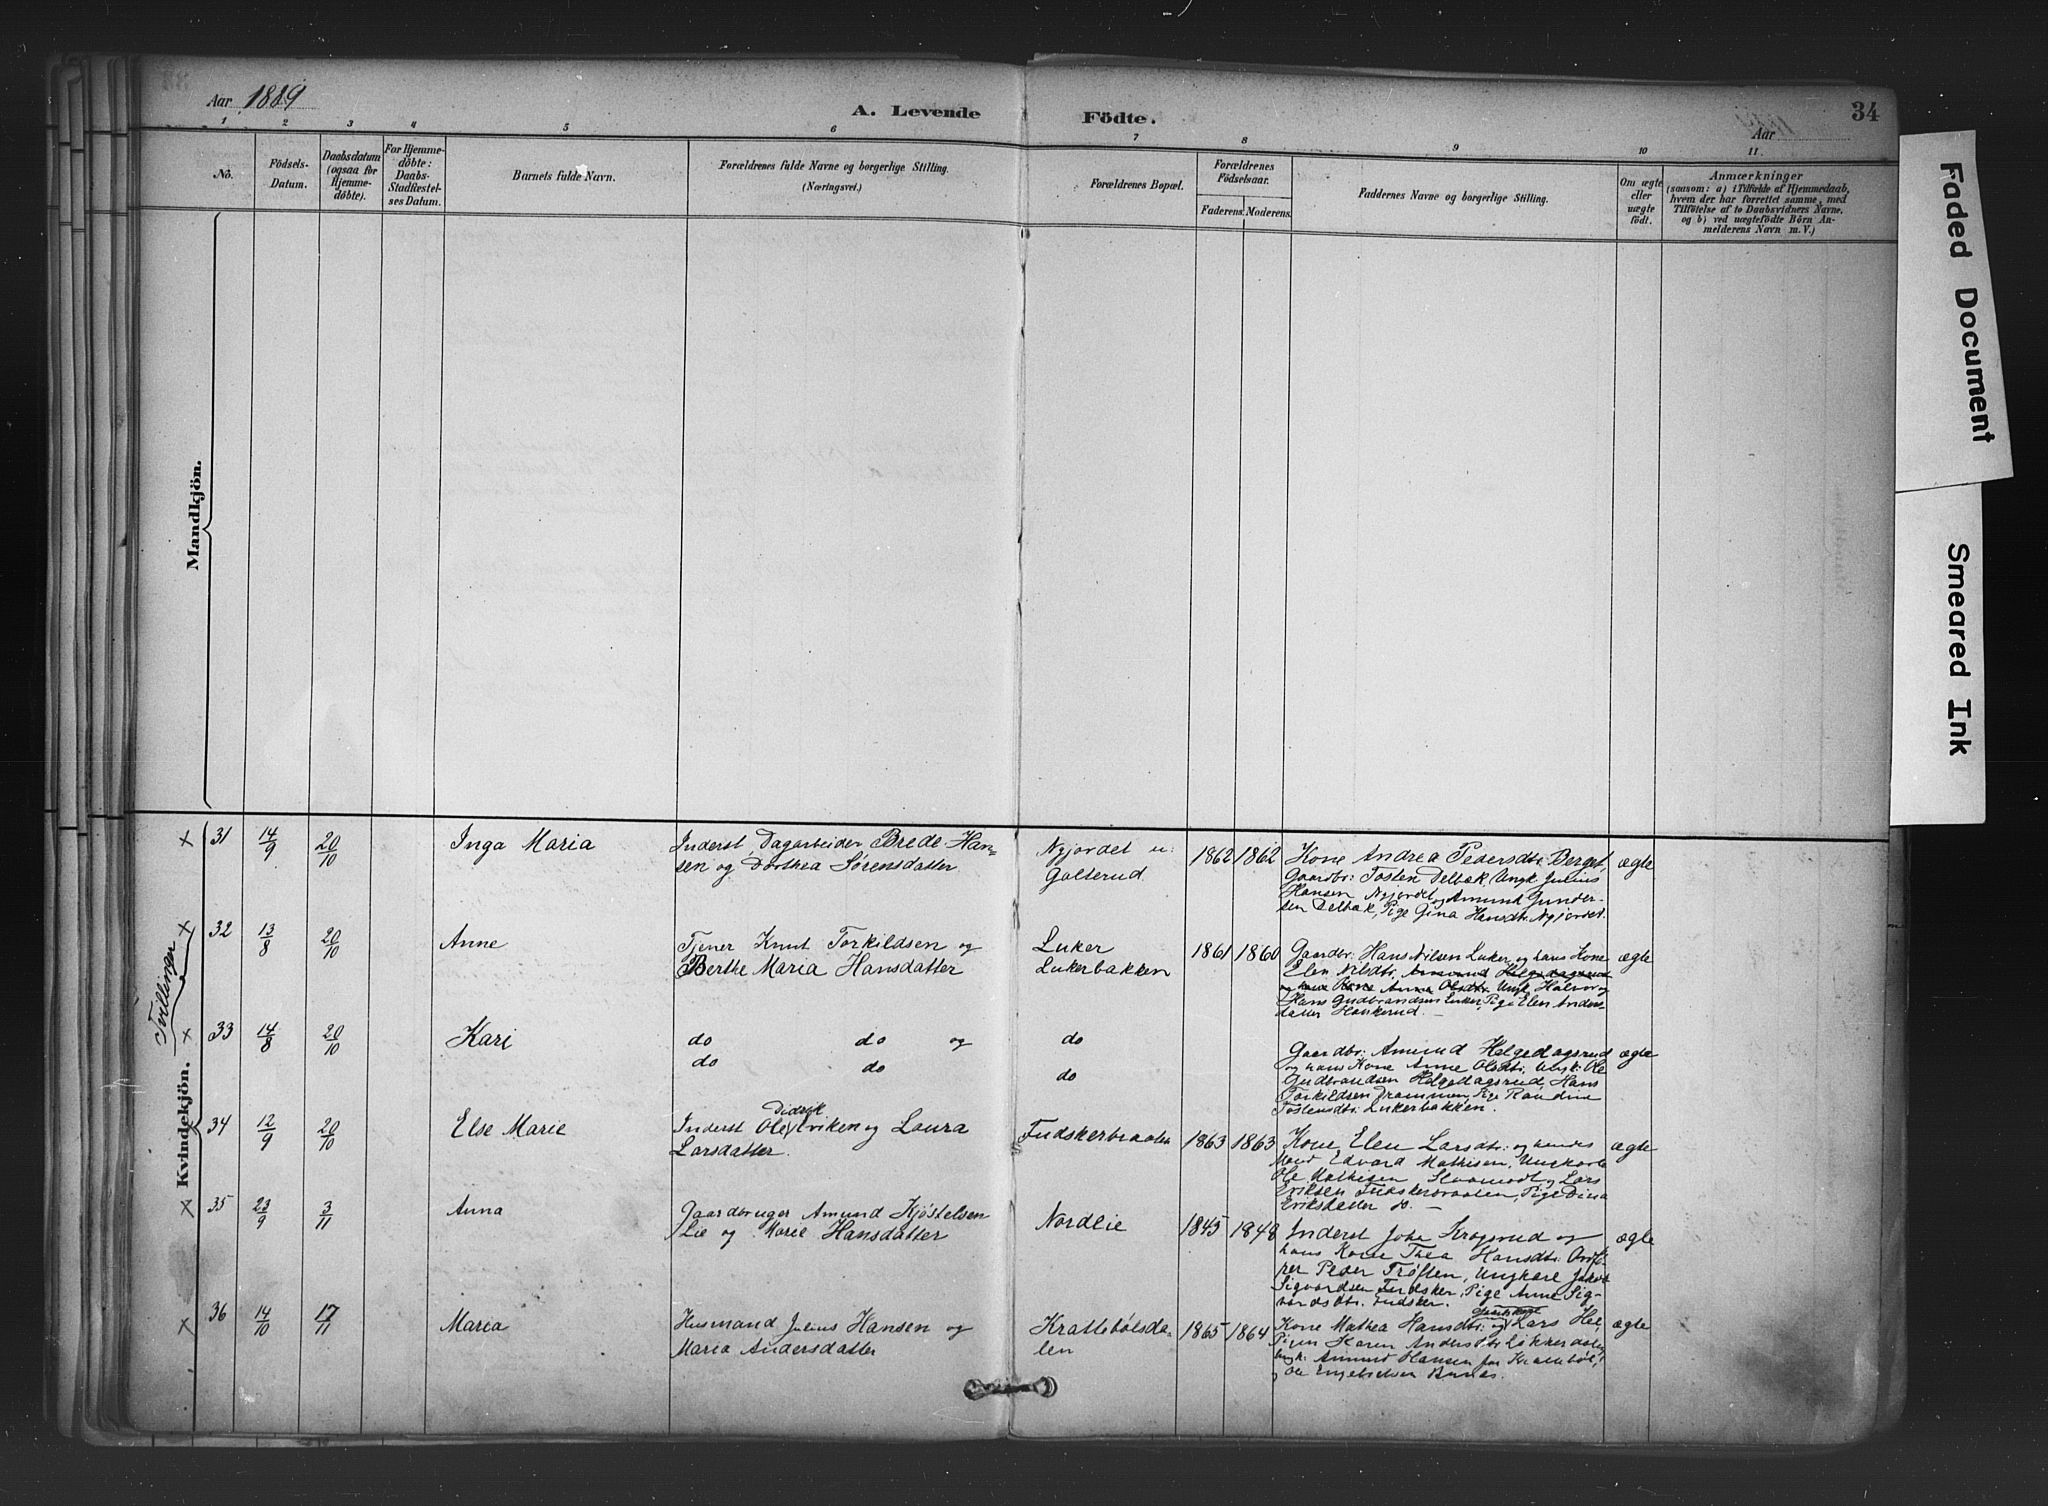 Aar 1889
A. Levende Födte.
Aar
34
1 2 3 4 5 6 7 8 9 10 11.
No.
Födsels-
Datum.
Daabsdatum
(ogsaa for
Hjemme-
döbte).
For Hjemme-
döbte:
Daabs-
Stadfæstel-
ses Datum.
Barnets fulde Navn.
Forældrenes fulde Navne og borgerlige Stilling.
(Næringsvei.)
Forældrenes Bopæl.
Forældrenes
Födselsaar.
Faderens. Moderens.
Faddernes Navne og borgerlige Stilling.
Om ægte
eller
uægte
födt.
Anmærkninger
(saasom: a) i Tilfælde af Hjemmedaab,
hvem der har forrettet samme, med
Tilföielse af to Daabsvidners Navne,
og b) ved uægtefödte Börn An-
melderens Navn m. V.)
Mandkjön.
Kvindekjön.
Tvillinger
× 31 14/9 20/10
Inga Maria
Inderst, Dagarbeider Brede Han-
sen og Dorthea Sørensdatter
Nyjordet u:
Galterud
1862 1862
Kone Andrea Pedersdtr Berget,
Gaardbr: Tosten Delbæk, Ungk. Julius
Hansen Nyjordet og Amund Gunder-
sen Delbæk, Pige Gina Hansdtr. Nyjordet.
ægte
× 32 13/8 20/10
Anne
Tjener Knut Torkildsen og
Berthe Maria Hansdatter
Luker
Lukerbakken
1861 1860
Gaardbr: Hans Nilsen Luker og hans Kone
Elen Nilsdtr. Amund Helgedagsrud
og hans Kone Anne Olsdtr. Ungk Halvor og
Hans Gudbrandsen Luker, Pige Elen Anders-
datter Hankerud. –
ægte
× 33 14/8 20/10
Kari
do do og
do do
do
do
Gaardbr: Amund Helgedagsrud
og hans Kone Anne Olsdtr. Ungk: Ole
Gudbrandsen Helgedagsrud, Hans
Torkildsen Drammen, Pige Randine
Tostensdtr. Lukerbakken.
ægte
34 12/9 20/10
Else Marie
Didrik
Inderst Ole Eriksen og Laura
Larsdatter
Fudskerbraaten
1863 1863
Kone Elen Larsdtr: og hendes
Mand Edvard Mathisen, Ungkarle
Ole Mathisen og Lars
Eriksen Fudskerbraaten, Pige Dina
Eriksdatter do. –
ægte
× 35 23/9 3/11
Anna
Gaardbruger Amund Kjøstelsen
Lie og Marie Hansdatter
Nordlie
1845 1848
Inderst Johs Krogsrud og
hans Kone Thea Hansdtr.
Peder Trøften, Ungkarl Jakob
Sigvardsen Fudsker, Pige Anne Sig-
vardsdtr. Fudsker.
ægte
× 36 14/10 17/11
Maria
Husmand Julius Hansen og
Maria Andersdatter
Krattebølsda-
len
1865 1864
Kone Mathea Hansdtr: og Lars Hei,
Pigen Karen Andersdtr Løkkerdalen,
Ungk: Amund Hansen fra Krattebøl,
og Ole Engebretsen Bunæs.
ægte
Faded Document
Smeared Ink